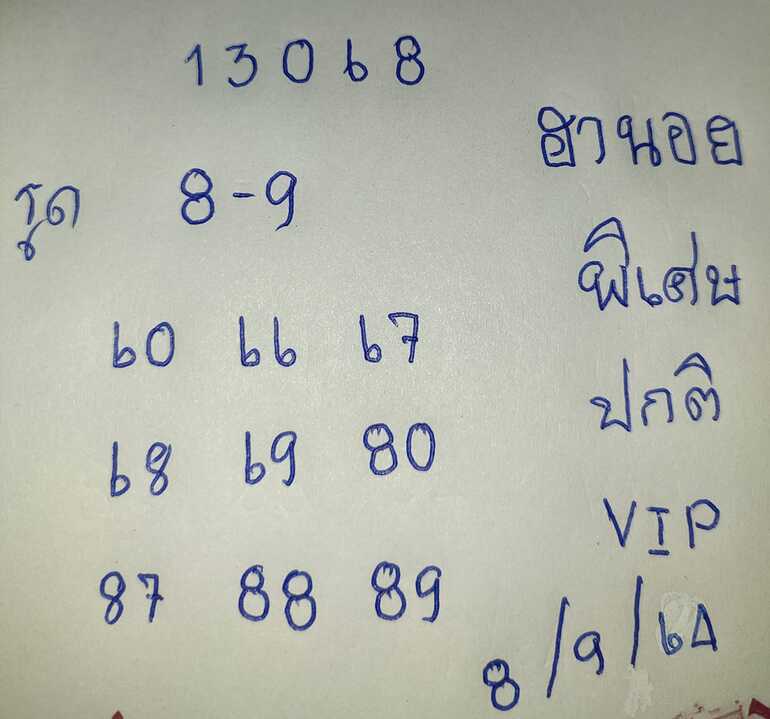 13068
ฮานอย
รูด 8-9
พิเศษ
60 66 67
ปกติ
68 69 80
VIP
87 88 89
8/9/64